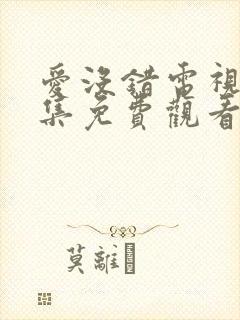 愛沒錯電視
集免費觀看
莫離